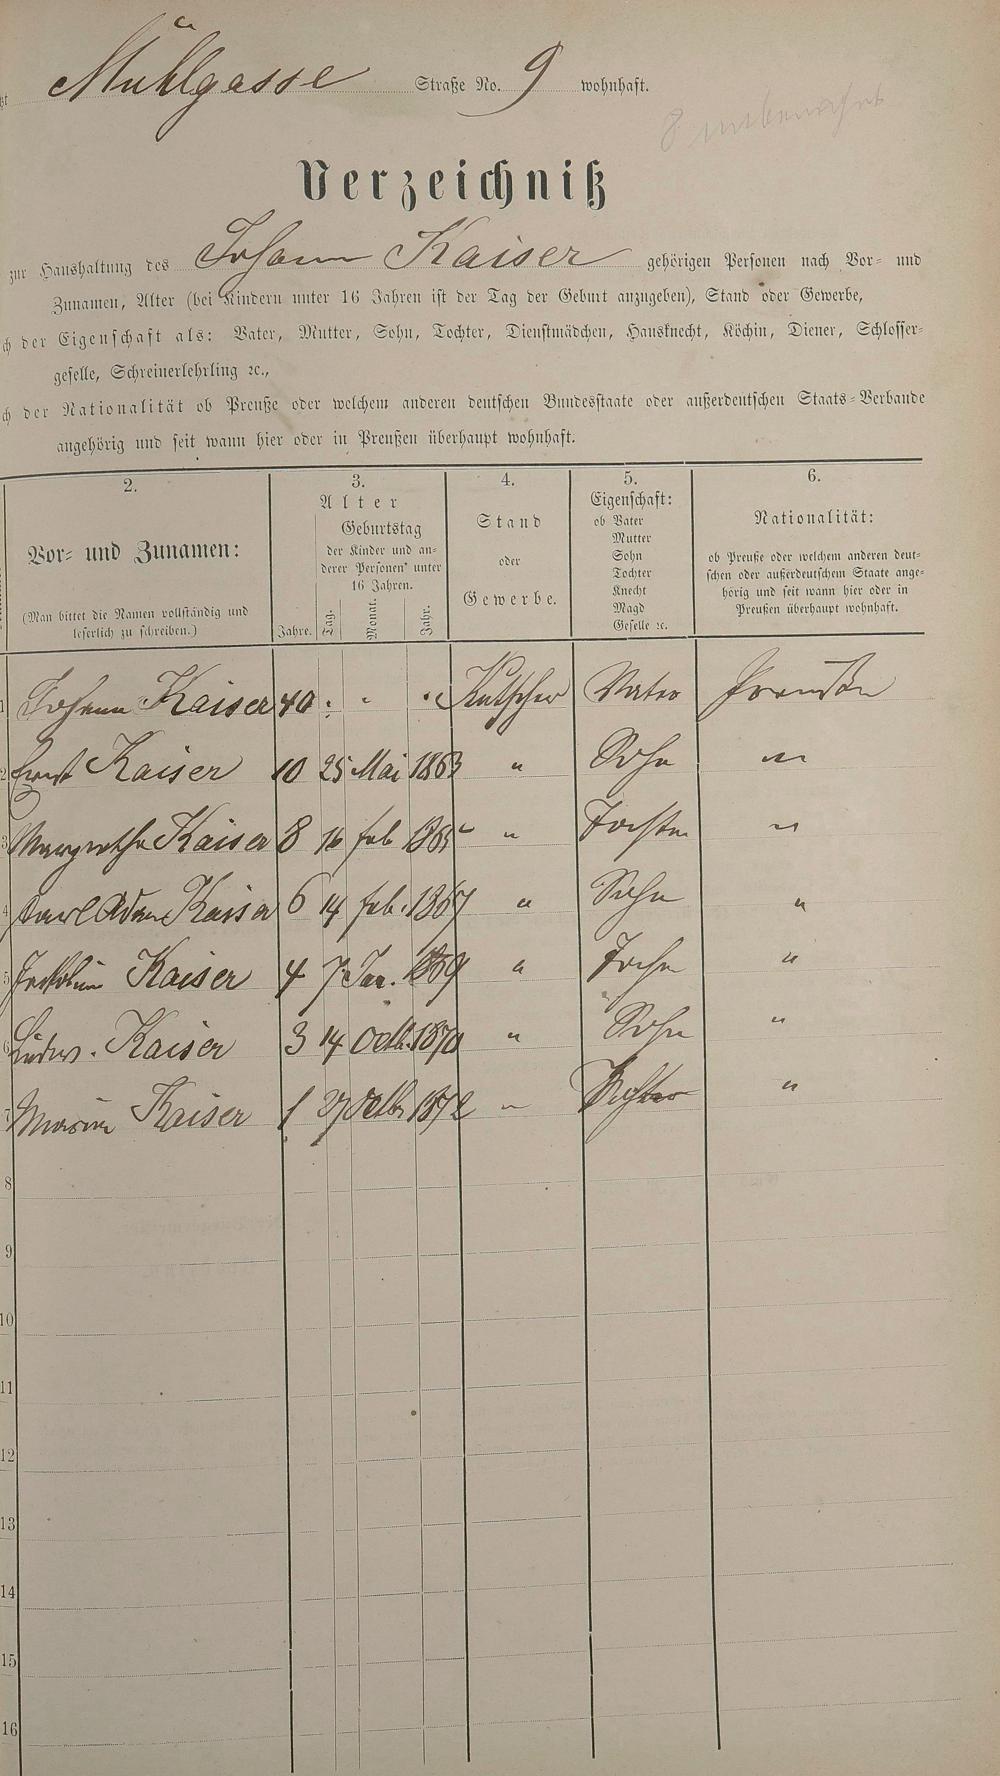 Mühlgasse Straße No. 9 wohnhaft.
Verzeichniß
zur Haushaltung des Johann Kaiser gehörigen Personen nach Vor- und
Zunamen, Alter (bei Kindern unter 16 Jahren ist der Tag der Geburt anzugeben), Stand oder Gewerbe,
der Eigenschaft als: Vater, Mutter, Sohn, Tochter, Dienstmädchen, Hausknecht, Köchin, Diener, Schlosser-
geselle, Schreinerlehrling ꝛc.,
der Nationalität ob Preuße oder welchem anderen deutschen Bundesstaate oder außerdeutschen Staats-Verbande
angehörig und seit wann hier oder in Preußen überhaupt wohnhaft.
2. 3. 4. 5. 6.
Vor- und Zunamen:
(Man bittet die Namen vollständig und
leserlich zu schreiben.)
Alter
Geburtstag
der Kinder und an-
derer Personen unter
16 Jahren.
Jahre. Tag. Monat. Jahr.
Stand
oder
Gewerbe.
Eigenschaft:
ob Vater
Mutter
Sohn
Tochter
Knecht
Magd
Geselle ꝛc.
Nationalität:
ob Preuße oder welchem anderen deut-
schen oder außerdeutschem Staate ange-
hörig und seit wann hier oder in
Preußen überhaupt wohnhaft.
1 Johann Kaiser 40 Kutscher Vater
2 Ernst Kaiser 10 25 Mai 1863 " Sohn "
3 Kaiser 8 16 Feb 1865 " "
4 Karl Adam Kaiser 6 14 Feb. 1867 " Sohn "
5 Kaiser 4 7 Jan. 1869 " "
6 Ludw. Kaiser 3 14 Octb. 1870 " Sohn "
7 Kaiser 1 27 Octb. 1872 " Tochter "
8
9
10
11
12
13
14
15
16